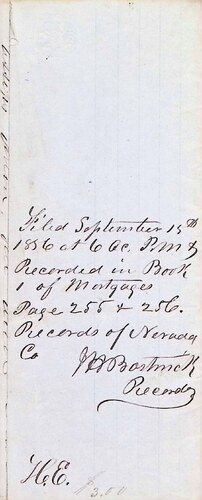 Filed September 15th
1856 at 6 Oc. P.M &
Recorded in Book
1 of Mortgages
Page 255 & 256.
Records of Nevada
Co
Bostwick
Recorder
H.E.
$3.00